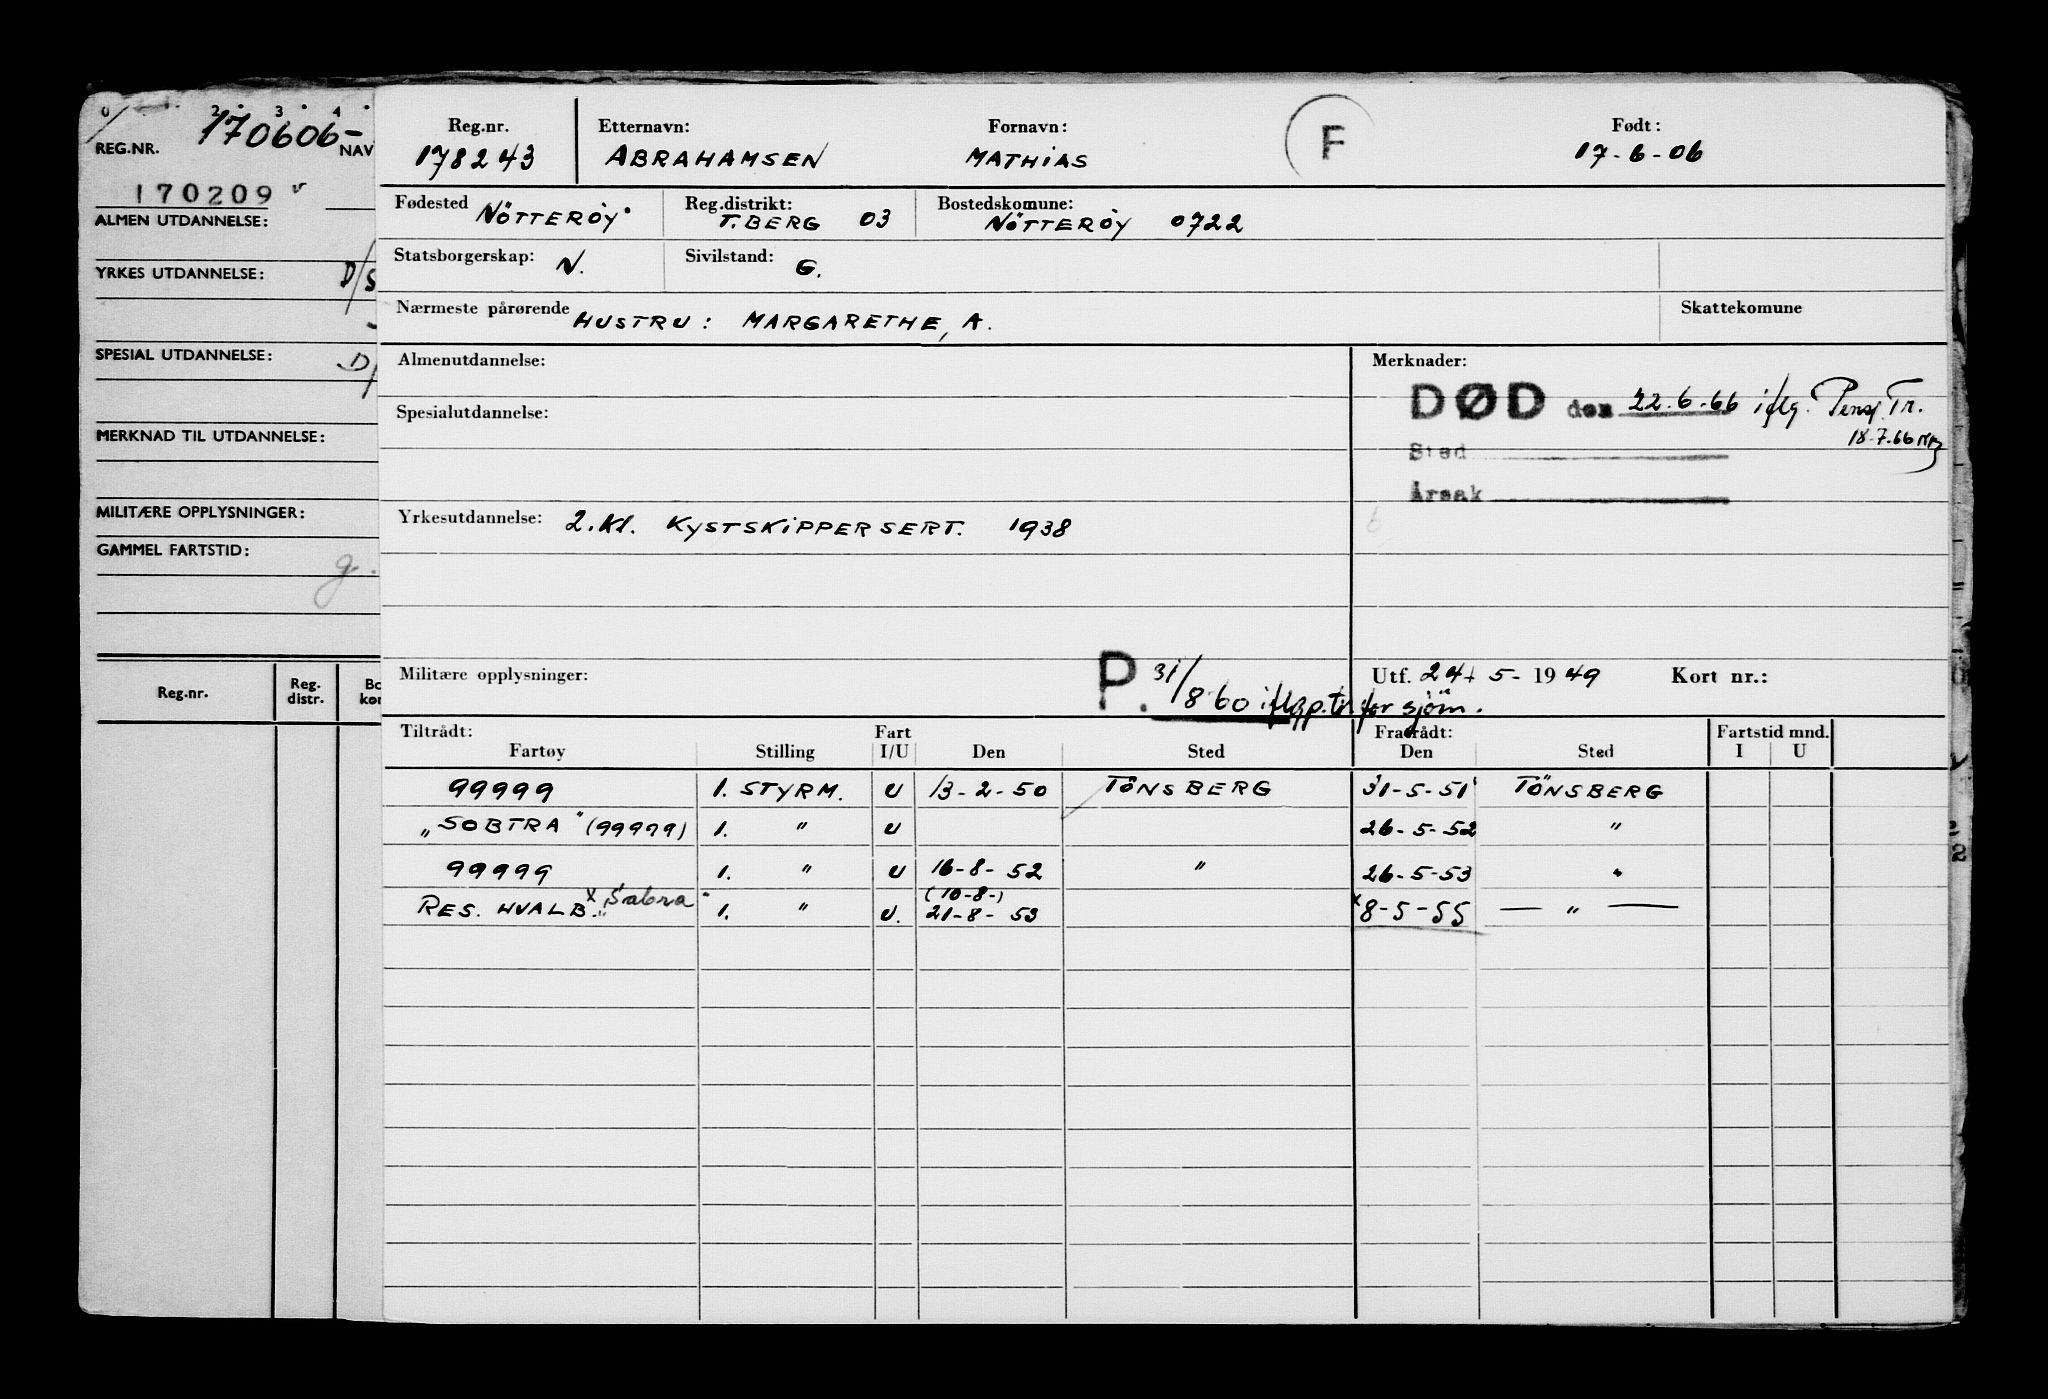 0 2 3 4
REG.NR. 170606- NAV
170209
ALMEN UTDANNELSE:
YRKES UTDANNELSE: D/S
SPESIAL UTDANNELSE: D/
MERKNAD TIL UTDANNELSE:
MILITÆRE OPPLYSNINGER:
GAMMEL FARTSTID: g.
Reg.nr. Reg. distr. Bo kon
Reg.nr. Etternavn: Fornavn: F Født:
178243 ABRAHAMSEN MATHIAS 17-6-06
Fødested NÖTTERÖY Reg.distrikt: T.BERG 03 Bostedskomune: NÖTTERÖY 0722
Statsborgerskap: N. Sivilstand: G.
Nærmeste pårørende HUSTRU: MARGARETHE, A. Skattekomune
Almenutdannelse: Merknader:
DØD den 22.6.66 iflg. Pensj.Tr.
18.7.66
Spesialutdannelse:
Sted
Årsak
Yrkesutdannelse: 2.kl. KYSTSKIPPERSERT. 1938
Militære opplysninger: P. 31/8 60 iflg p.tr. for sjöm.
Utf. 24-5-1949 Kort nr.:
Tiltrådt: Fart Fratrådt: Fartstid mnd.
Fartøy Stilling I/U Den Sted Den Sted I U
99999 1. STYRM. U 13-2-50 TÖNSBERG 31-5-51 TÖNSBERG
„SOBTRA" (99999) 1. " U 26-5-52 "
99999 1. " U 16-8-52 " 26-5-53 "
RES. HVALB. x „Sabra" 1. " U. (10-8-) 21-8-53 x 8-5-55 — " —